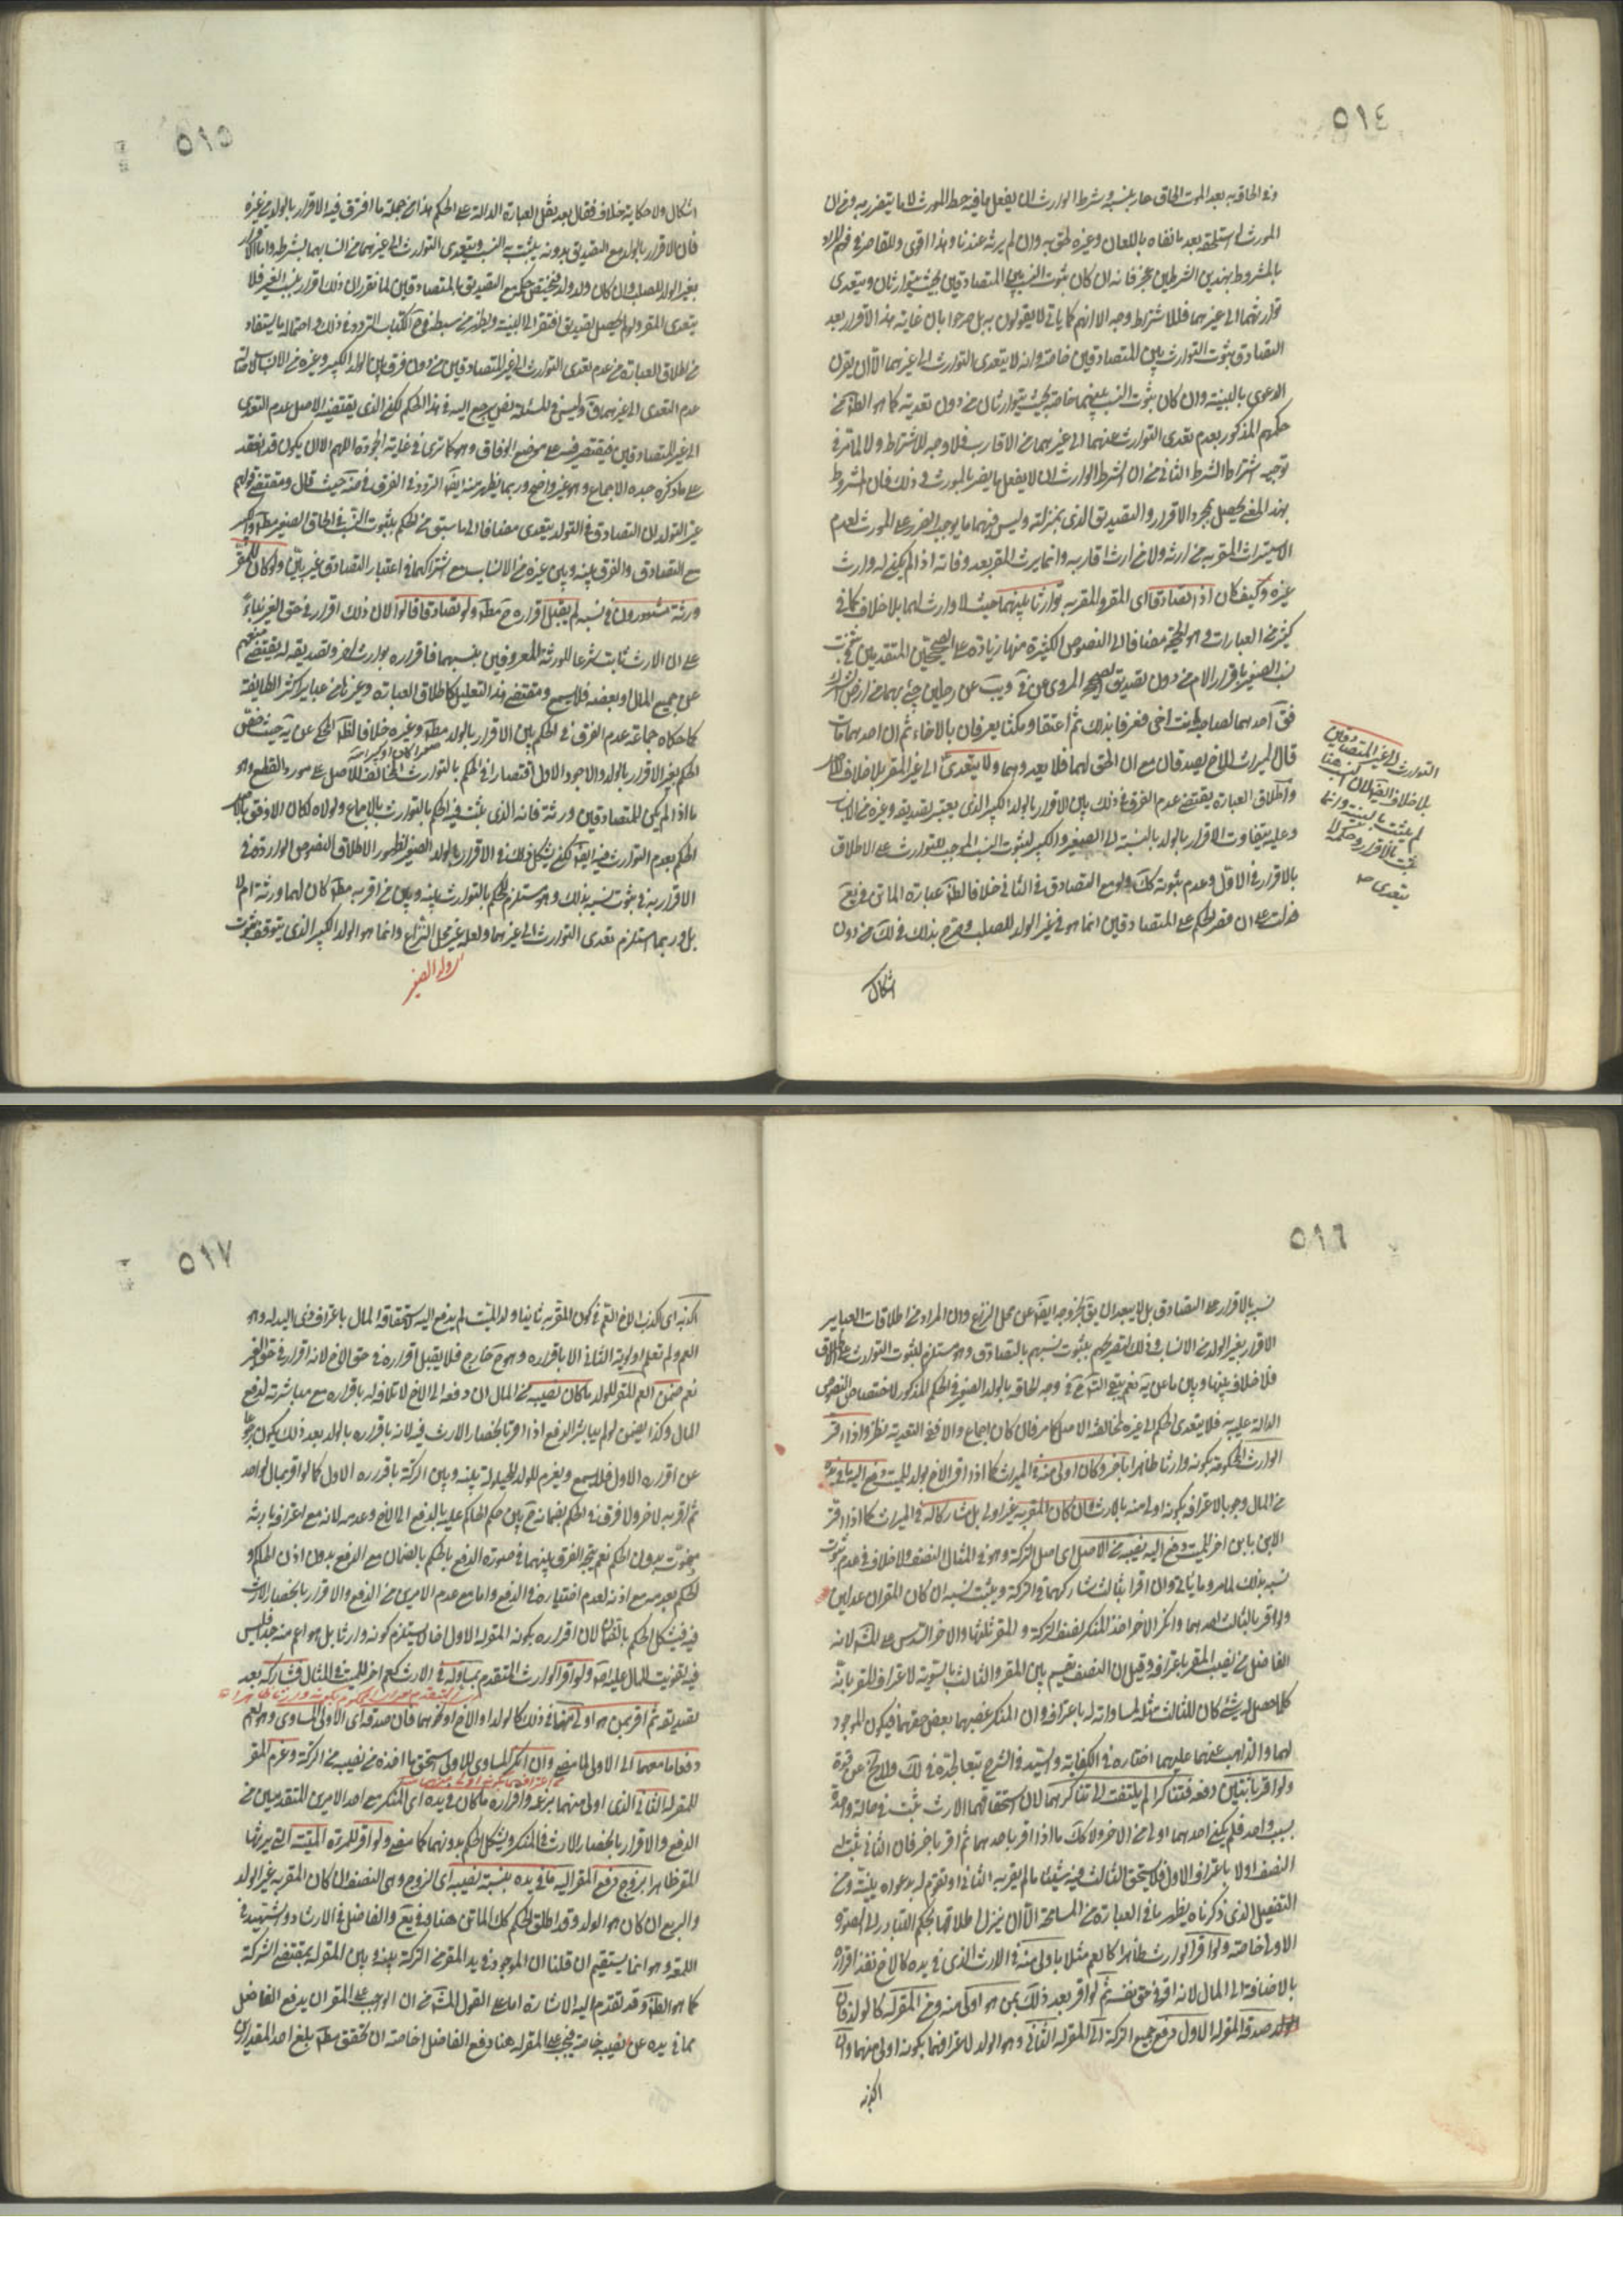 ٥١٤
وفي الحاقه به بعد الموت الحاق عار بنسبه وشرط الوارث ان يفعل ما فيه حظ المورث لا ما يتضرر به وفي ان
المورث لو استلحقه بعد ما نفاه باللعان وغيره لحق به وان لم يرثه عندنا وهذا اقوى وللقاصر في فهم المراد
بالمشروط بهذين الشرطين عجز فانه ان كان ثبوت النسب بين المتصادقين بحيث يتوارثان ويتعدى
توارثهما الى غيرهما فللاشتراط وجه الا انهم كما ياتي لا يقولون به بل صرحوا بان غاية هذا الاقرار بعد
التصادق ثبوت التوارث بين المتصادقين خاصة وانه لا يتعدى بالتوارث الى غيرهما الا ان يقرن
الدعوى بالبينة وان كان ثبوت النسب بينهما خاصة بحيث يتوارثان من دون تعدية كما هو الظ من
حكمهم المذكور بعدم تعدى التوارث عنهما الى غيرهما من الاقارب فلا وجه للاشتراط ولا لما مر في
توجيه اشتراط الشرط الثاني من ان شرط الوارث ان لا يفعل ما يضر بالمورث وذلك فان المشروط
بهذا المعنى يحصل بمجرد الاقرار والتصديق الذى بمنزلته وليس فيهما ما يوجب الضرر على المورث لعدم
الاستيراث المقر به من ارثه ولا من ارث اقاربه وانما يرث المقر بعد وفاته اذا لم يكن له وارث
غيره وكيف كان اذا تصادقا اى المقر والمقر به توارثا بينهما حيث لا وارث لهما بلا خلاف كما في
كثير من العبارات وهو الحجة مضافا الى النصوص الكثيرة منها زيادة على الصحيحين المتقدمين في ثبوت
نسب الصغير باقرار الام من دون تصديق الصحيح المروى عن في ويب عن رجلين جئ بهما من ارض الشرك
فق احدهما لصاحبه انت اخى فعرفا بذلك ثم اعتقا ومكثا يعرفان بالاخاء ثم ان احدهما مات
قال الميراث للاخ يصدقان مع ان الحق لهما فلا يعدوهما ولا يتعدى الى غير المقر بلا خلاف
واطلاق العبارة يقتضى عدم الفرق في ذلك بين الاقرار بالولد الكبير الذى يعتبر تصديقه وغيره من الانساب
وعليه يتفاوت الاقرار بالولد بالنسبة الى الصغير والكبير لثبوت النسب الموجب للتوارث على الاطلاق
بالاقرار في الاول وعدم ثبوته كك ولو مع التصادق في الثاني خلافا لظ عبارة الماتن في يع
فدلت على ان قصر الحكم على المتصادقين انما هو في غير الولد للصلب وصرح بذلك في لك من دون
اشكال
التوارث الى غير المتصادقين
بلا خلاف
لم يثبت بالبينة وانما
ثبت بالاقرار وحكمه لا
يتعدى صح
٥١٥
اشكال ولا حكاية خلاف فقال بعد نقل العبارة الدالة على الحكم هذا من جملة ما افترق فيه الاقرار بالولد من غيره
فان الاقرار بالولد مع التصديق بدونه يثبت به النسب ويتعدى التوارث الى غيرهما من انسابهما بشرطه واما الاقرار
بغير الولد للصلب وان كان ولد ولد فيختص حكمه مع التصديق بالمتصادقين لما تقرر ان ذلك اقرار بنسب الغير فلا
يتعدى المقر ولو لم يحصل تصديق افتقر الى البينة ويظهر من سبطه في ح الكتاب التردد في ذلك واحتمال ما يستفاد
من اطلاق العبارة من عدم تعدى التوارث الى غير المتصادقين من دون فرق بين الولد الكبير وغيره من الانساب
عدم التعدى الى غيرهما وليس في المسئلة نص يرجع اليه في هذا الحكم لكن الذى يقتضيه الاصل عدم التعدى
الى غير المتصادقين فيقتصر فيه على موضع الوفاق وهو كما ترى في غاية الجودة اللهم الا ان يكون قد انعقد
على ما ذكره جده الاجماع وهو غير واضح وربما يظهر منه ايضا التردد في الفرق في ضه حيث قال ومقتضى قولهم
غير التولد ان التصادق في التولد يتعدى مضافا الى ما سبق من الحكم بثبوت النسب في الحاق الصغير مط والكبير
مع التصادق والفرق بينه وبين غيره من الانساب مع اشتراكهما في اعتبار التصادق غير بين ولو كان للمقر
ورثة مشهورون في نسبه لم يقبل اقراره ح مط ولو تصادقا قالوا لان ذلك اقرار في حق الغير بناء
على ان الارث ثابت شرعا للورثة المعروفين بنسبهما فاقراره بوارث اخر وتصديقه له يقتضى منعهم
عن جميع المال او بعضه فلا يسمع ومقتضى هذا التعليل كاطلاق العبارة وغيرها من عباير اكثر الطائفة
كما حكاه جماعة عدم الفرق في الحكم بين الاقرار بالولد مط وغيره خلافا لظ المحكى عن يه حيث خص
الحكم بغير الاقرار بالولد والاجود الاول اقتصارا في الحكم بالتوارث المخالف للاصل على مورد القطع وهو
ما اذا لم يكن للمتصادقين ورثة فانه الذى يثبت فيه الحكم بالتوارث بالاجماع ولولاه لكان الاوفق بالاصل
الحكم بعدم التوارث فيه ايضا لكن يشكل ذلك في الاقرار بالولد الصغير لظهور الاطلاق النصوص الواردة في
الاقرار به في ثبوت نسبه بذلك وهو مستلزم للحكم بالتوارث بينه وبين من اقر به مط كان لهما ورثة ام لا
بل وربما استلزم تعدى التوارث الى غيرهما ولعله غير محل النزاع وانما هو الولد الكبير الذى يتوقف ثبوت
٥١٦
نسبه بالاقرار على التصادق بل لا يبعد
الاقرار بغير الولد من الانساب وذلك لتصريحهم بثبوت نسبهم بالتصادق وهو مستلزم لثبوت التوارث على الاطلاق
فلا خلاف بينها وبين ما عن يه نعم يتجه
الدالة عليه به فلا يتعدى الحكم الى غيره لمخالفته الاصل كما مر فان كان اجماع والا ففي التعدية نظر واذا اقر
الوارث المحكوم بكونه وارثا ظاهرا باخر وكان اولى منه في الميراث كما اذا اقر الاخ بولد للميت دفع اليه ما في يده
من المال وجوبا لاعترافه بكونه اولى منه بالارث وان كان المقر به غير اولى بل مشاركا له في الميراث كما اذا اقر
الابن بابن اخر للميت دفع اليه نصيبه من الاصل اى اصل التركة وهو في المثال النصف ولا خلاف في عدم ثبوت
نسبه بذلك لما مر وما ياتي وان اقرا بثالث شاركهما في التركة ويثبت نسبه ان كان المقران عدلين
ولو اقر بالثالث احدهما وانكر الاخر اخذ المنكر نصف التركة والمقر ثلثها والاخر السدس على المش لانه
الفاضل من نصيب المقر باعترافه وقيل ان النصف يقسم بين المقر والثالث بالسوية لاعتراف المقر بانه
كلما حصل له شئ كان للثالث مثله لمساواته له باعترافه وان المنكر غصبهما بعض حقهما فيكون الموجود
لهما والذاهب عنهما عليهما اختاره في الكفاية والسيد في الشرح تبعا لجده في لك ولا يخ عن قوة
ولو اقر باثنين دفعة فتناكرا لم يلتفت الى تناكرهما لان استحقاقهما الارث يثبت في حالة واحدة
بسبب واحد فلم يكن احدهما اولى من الاخر ولا كك ما اذا اقر باحدهما ثم اقر باخر فان الثاني يثبت له
النصف اولا باعتراف الاول فلا يستحق الثالث فيه شيئا ما لم يقر به الثاني او تقوم له بدعواه بينة ومن
التفصيل الذى ذكرناه يظهر ما في العبارة من المسامحة الا ان ينزل اطلاقها بحكم التبادر الى الصورة
الاولى خاصة ولو اقر الوارث ظاهرا كالعم مثلا باولى منه في الارث الذى في يده كالاخ نفذ اقراره
بالاضافة الى المال لانه اقر في حق نفسه ثم لو اقر بعد ذلك بمن هو اولى منه ومن المقر له كالولد فان
صدقه المقر له الاول دفع جميع التركة الى المقر له الثاني وهو الولد لاعترافهما بكونه اولى منهما وان
اكذبه
٥١٧
اكذبه اى اكذب الاخ العم في كون المقر به ثانيا ولد الميت لم يدفع اليه لاستحقاقه المال باعتراف ذى اليد له وهو
العم ولم تعلم اولوية الثاني الا باقراره وهو ح خارج فلا يقبل اقراره في حق الاخ لانه اقرار في حق الغير
نعم ضمن العم المقر للولد ما كان نصيبه من المال ان دفعه الى الاخ لاتلافه له باقراره مع مباشرته لدفع
المال وكذا يضمن لو لم يباشر الدفع اذا اقر بانحصار الارث فيه لانه باقراره بالولد بعد ذلك يكون رجوعا
عن اقراره الاول فلا يسمع ويغرم للولد للحيلولة بينه وبين التركة باقراره الاول كما لو اقر بمال لواحد
ثم اقر به لاخر ولا فرق في الحكم بضمانه ح بين حكم الحاكم عليه بالدفع الى الاخ وعدمه لانه مع اعترافه بارثه
مفوت بدون الحكم نعم يتجه الفرق بينهما في صورة الدفع بالحكم بالضمان مع الدفع بدون اذن الحاكم و
الحكم بعدمه مع اذنه لعدم اختياره في الدفع واما مع عدم الامرين من الدفع والاقرار بانحصار الارث
فيه فيشكل الحكم بالضمان لان اقراره بكونه المقر له الاول اخا لا يستلزم كونه وارثا بل هو اعم منه فليس
فيه تفويت للمال عليه اصلا ولو اقر الوارث المتقدم بمساو له في الارث كعم اخر للميت في المثال فشاركه بعد
تصديقه ثم اقر بمن هو اولى منهما في ذلك كالولد او الاخ او نحوهما فان صدقه اى الاولى المساوى وهو العم
دفعا ما معهما الى الاولى لما مضى وان انكر المساوى للاولى استحق ما اخذه من نصيب من التركة وغرم المقر
للمقر له الثاني الذى اولى منهما بزعمه واقراره ما كان في يده اى المنكر مع احد الامرين المتقدمين من
الدفع والاقرار بانحصار الارث في المنكر ويشكل الحكم بدونهما كما مضى ولو اقر للمرئة الميتة التى يرثها
المقر ظاهرا بزوج دفع المقر اليه ما في يده بنسبة نصيبه اى الزوج وهى النصف ان كان المقر به غير الولد
والربع ان كان هو الولد وقد اطلق الحكم كك الماتن هنا وفي يع والفاضل في الارشاد والشهيد في
اللمعة وهو انما يستقيم ان قلنا ان الموجود في يد المقر من التركة بينه وبين المقر له بمقتضى الشركة
كما هو الظ وقد تقدم اليه الاشارة اما على القول المش من ان الواجب على المقر ان يدفع الفاضل
مما في يده عن نصيبه خاصة فيجب على المقر له هنا دفع الفاضل خاصة ان تحقق مط بلغ احد المقدارين